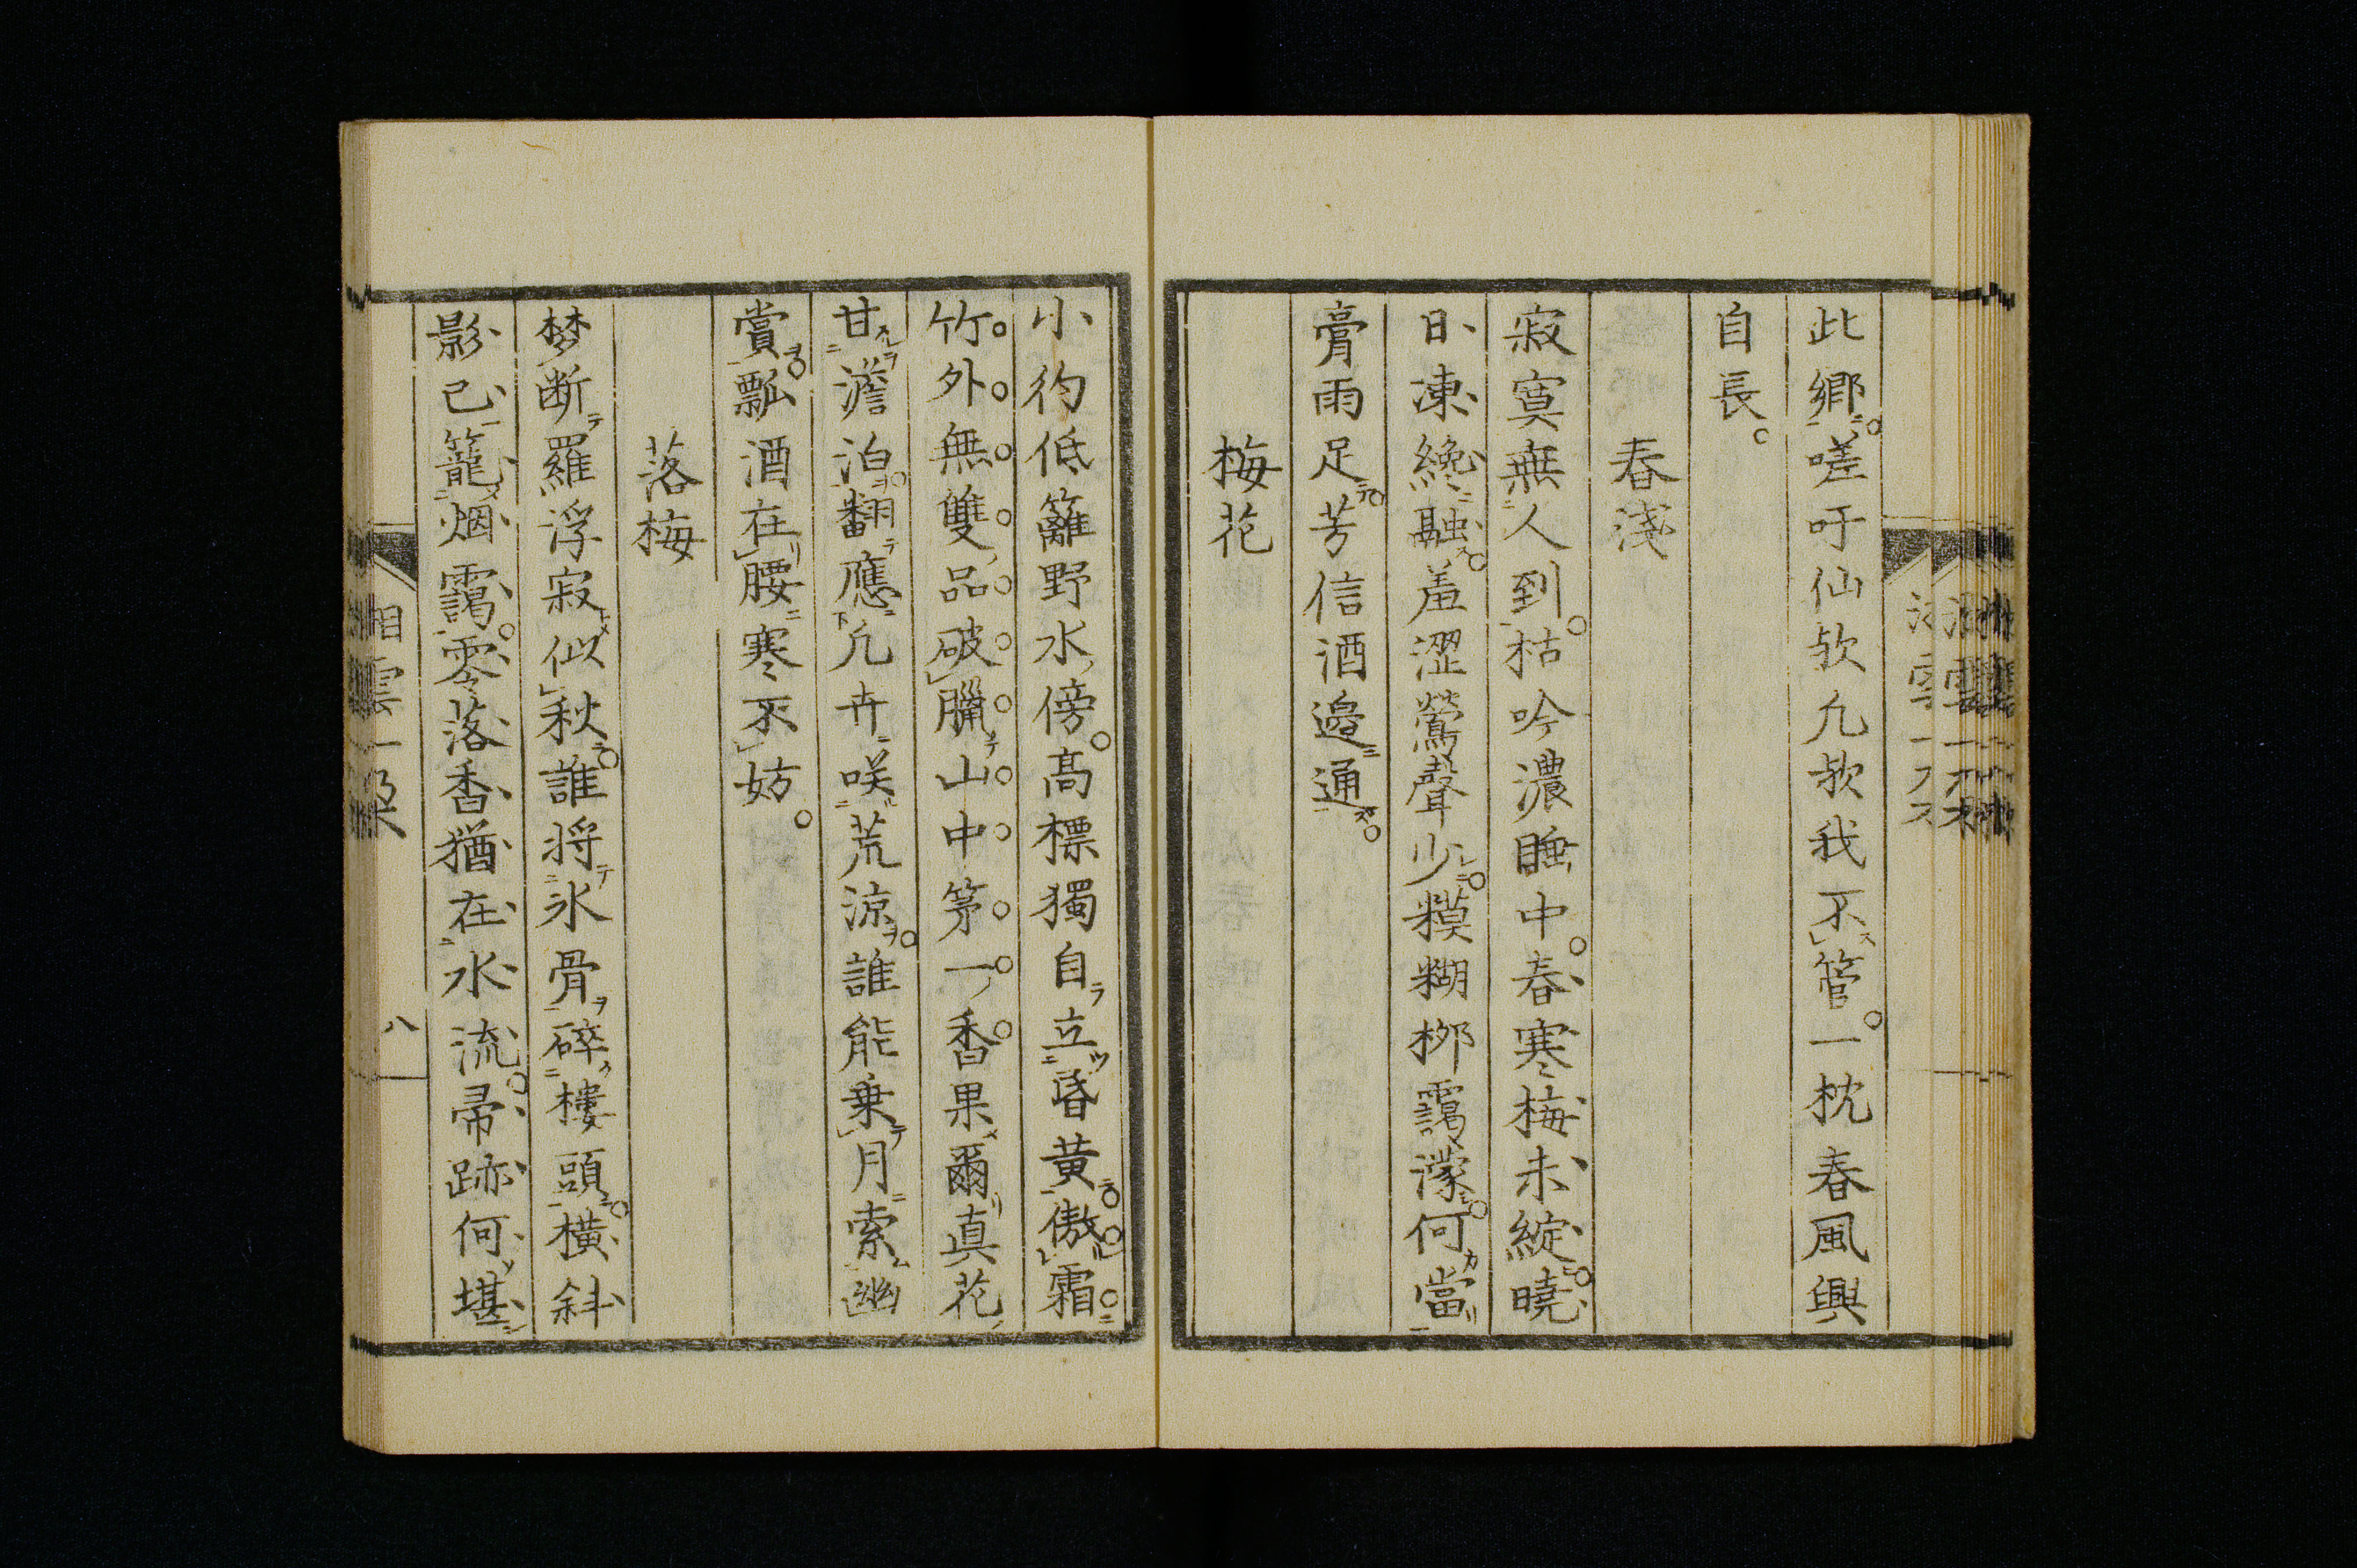 此鄉嗟吁仙欤凢欤我不管一枕春風興
自長
春淺
寂寞無人到枯吟濃睡中春寒梅未綻曉
日凍纔融羞澀鶯聲少糢糊柳靄濛何當
膏雨足芳信酒邊通
梅花
小彴低籬野水傍高標獨自立昏黃傲霜
竹外無雙品破臘山中第一香果爾真花
甘澹泊翻應凢卉咲荒涼誰能乗月索幽
賞瓢酒在腰寒不妨
落梅
梦断羅浮寂似秋誰将氷骨碎樓頭橫斜
影已籠烟靄零落香猶在水流帚跡何堪
湘雲一朶
八